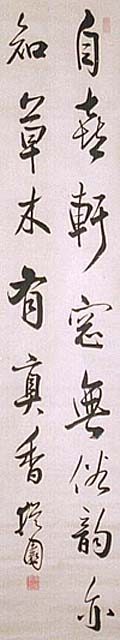 自喜軒窓無俗韻亦
知草木有真香